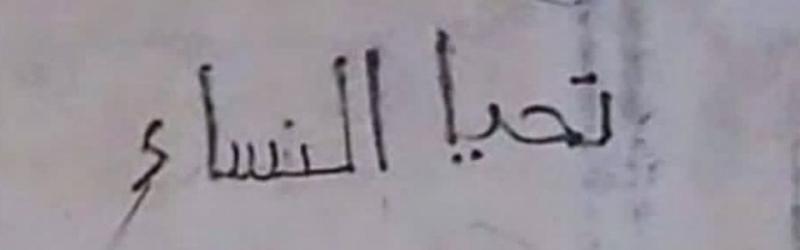 تحيا النساء